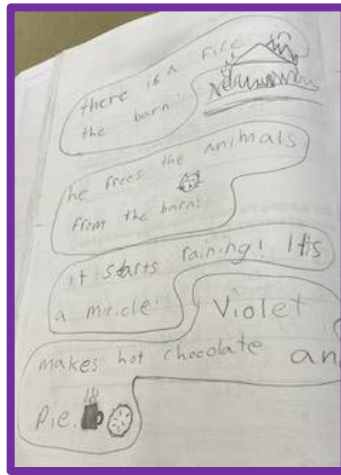 there is a fire
the barn!
he frees the animals
from the barn!
it starts raining! It's
a miricle!
Violet
makes hot chocolate an
Pie.